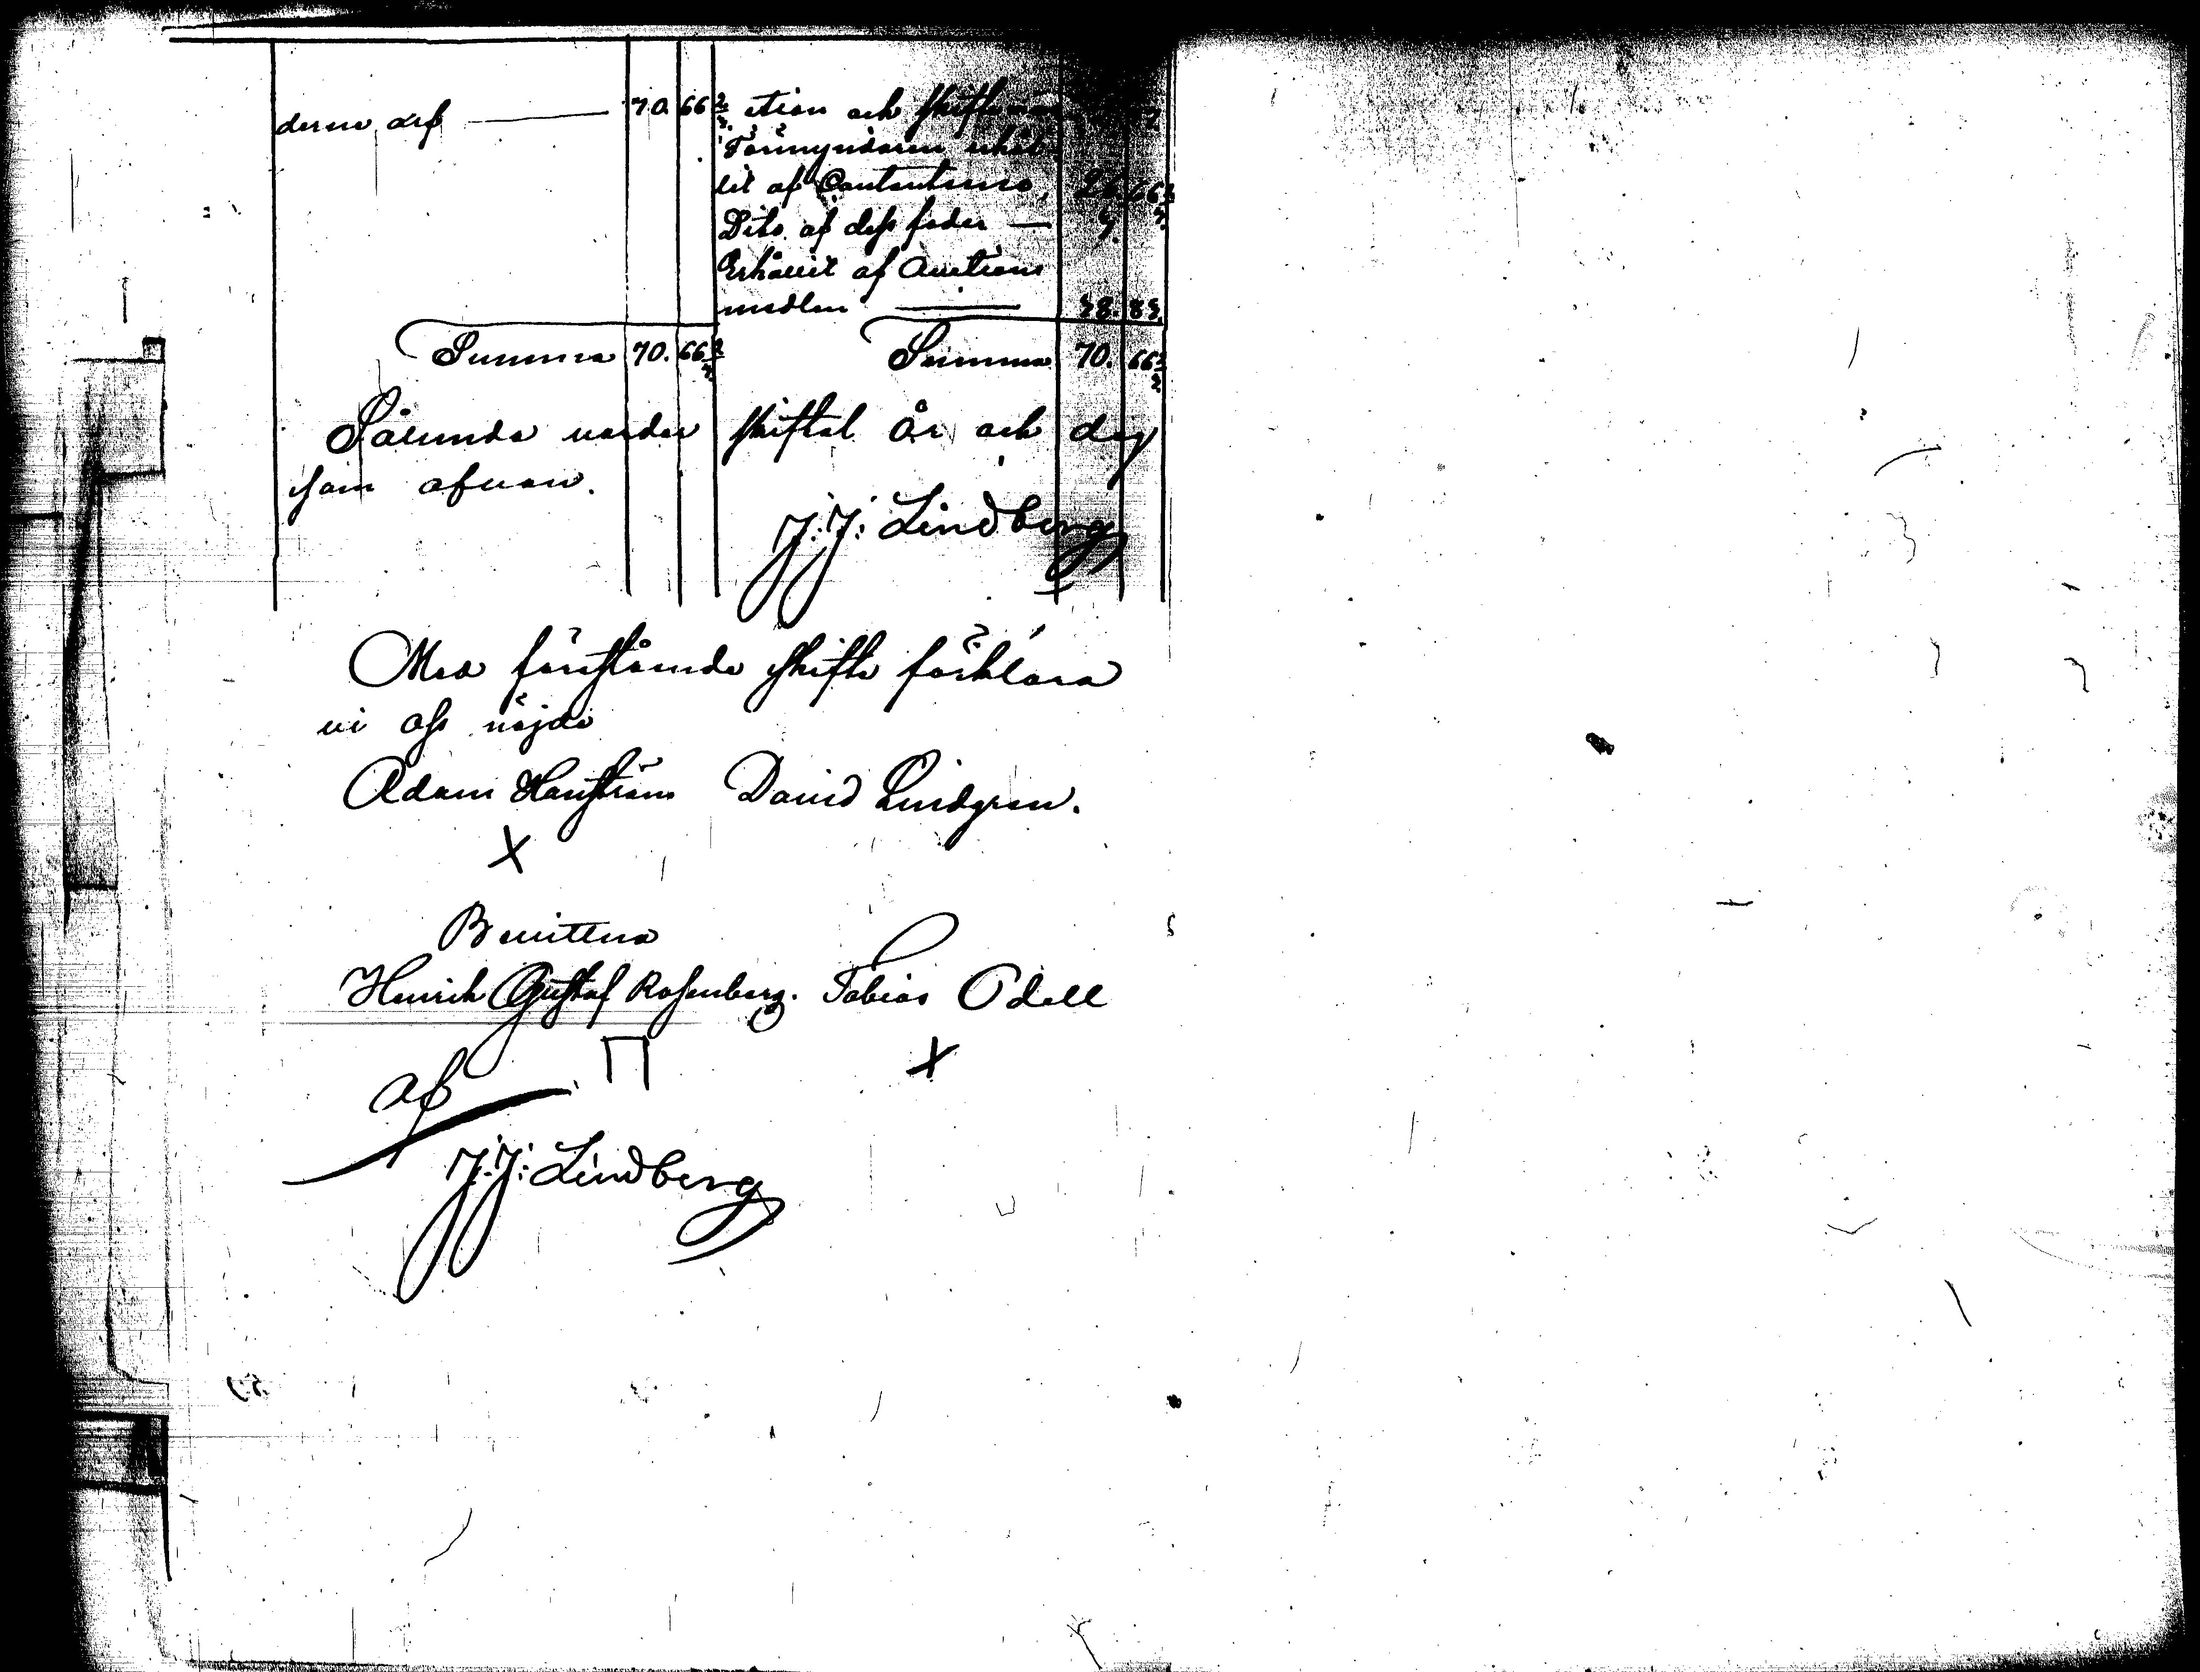 derne arf — 70. 66 2/3
ction och skifte
Förmyndaren erhål-
lit af Contanterne, 66 2/3
Dito af dess fader — 5.
Erhållit af Auctions
medlen — 38. 83
Summa 70. 66 2/3 Summa 70. 66 2/3
Sålunda vorder skiftat År och dag
som ofvan.
J. J. Lindberg
Med förestående skifte förklara
vi oss nöjda
Adam Hanström David Lindgren.
X
Bevittna
Henrik Gustaf Rosenberg. Tobias Odell
X
af
J. J. Lindberg